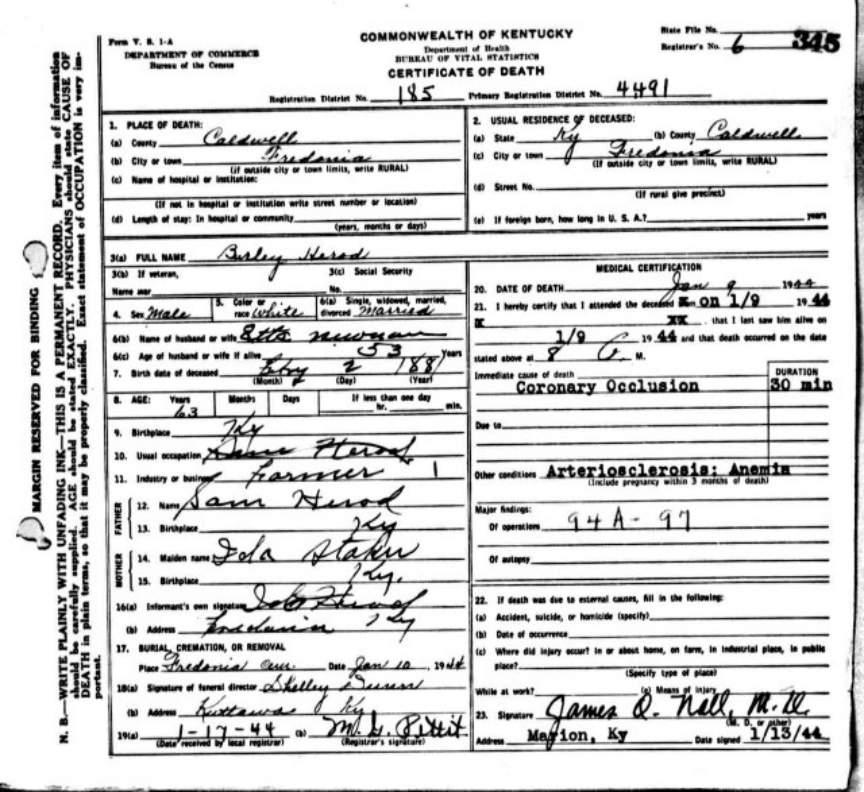 Form V. S. 1-A
DEPARTMENT OF COMMERCE
Bureau of the Census
COMMONWEALTH OF KENTUCKY
Department of Health
BUREAU OF VITAL STATISTICS
CERTIFICATE OF DEATH
State File No.
Registrar's No. 6 345
Registration District No. 185 Primary Registration District No. 4491
MARGIN RESERVED FOR BINDING
N. B.—WRITE PLAINLY WITH UNFADING INK—THIS IS A PERMANENT RECORD. Every item of information
should be carefully supplied. AGE should be stated EXACTLY. PHYSICIANS should state CAUSE OF
DEATH in plain terms, so that it may be properly classified. Exact statement of OCCUPATION is very im-
portant.
1. PLACE OF DEATH:
(a) County Caldwell
(b) City or town Fredonia
(If outside city or town limits, write RURAL)
(c) Name of hospital or institution:
(If not in hospital or institution write street number or location)
(d) Length of stay: In hospital or community
(years, months or days)
2. USUAL RESIDENCE OF DECEASED:
(a) State Ky (b) County Caldwell
(c) City or town Fredonia
(If outside city or town limits, write RURAL)
(d) Street No.
(If rural give precinct)
(e) If foreign born, how long in U. S. A.? years
3(a) FULL NAME Burley Herod
3(b) If veteran, 3(c) Social Security
Name war No.
4. Sex Male 5. Color or race White 6(a) Single, widowed, married, divorced Married
6(b) Name of husband or wife Etta Newman
6(c) Age of husband or wife if alive 53 Years
7. Birth date of deceased Feby 2 1881
(Month) (Day) (Year)
8. AGE: Years Months Days If less than one day
63 hr. min.
9. Birthplace Ky
10. Usual occupation Sam Herod
11. Industry or business Farmer 1
FATHER
12. Name Sam Herod
13. Birthplace Ky
MOTHER
14. Maiden name Ida
15. Birthplace Ky.
16(a) Informant's own signature Herod
(b) Address Fredonia Ky
17. BURIAL, CREMATION, OR REMOVAL
Place Fredonia Cem. Date Jan 10, 1944
18(a) Signature of funeral director Shelley Dunn
(b) Address Kuttawa Ky
19(a) 1-17-44 (b) M. G. Pettit
(Date received by local registrar) (Registrar's signature)
MEDICAL CERTIFICATION
20. DATE OF DEATH Jan 9 1944
21. I hereby certify that I attended the deceased on 1/9 19 44
X XX, that I last saw him alive on
1/9 19 44 and that death occurred on the date
stated above at 8 A. M.
Immediate cause of death DURATION
Coronary Occlusion 30 min
Due to
Other conditions Arteriosclerosis; Anemia
(Include pregnancy within 3 months of death)
Major findings:
Of operations 94A-97
Of autopsy
22. If death was due to external causes, fill in the following:
(a) Accident, suicide, or homicide (specify)
(b) Date of occurrence
(c) Where did injury occur? In or about home, on farm, in industrial place, in public
place?
(Specify type of place)
While at work? (e) Means of injury
23. Signature James O. Nall, M.D.
(M. D. or other)
Address Marion, Ky Date signed 1/13/44